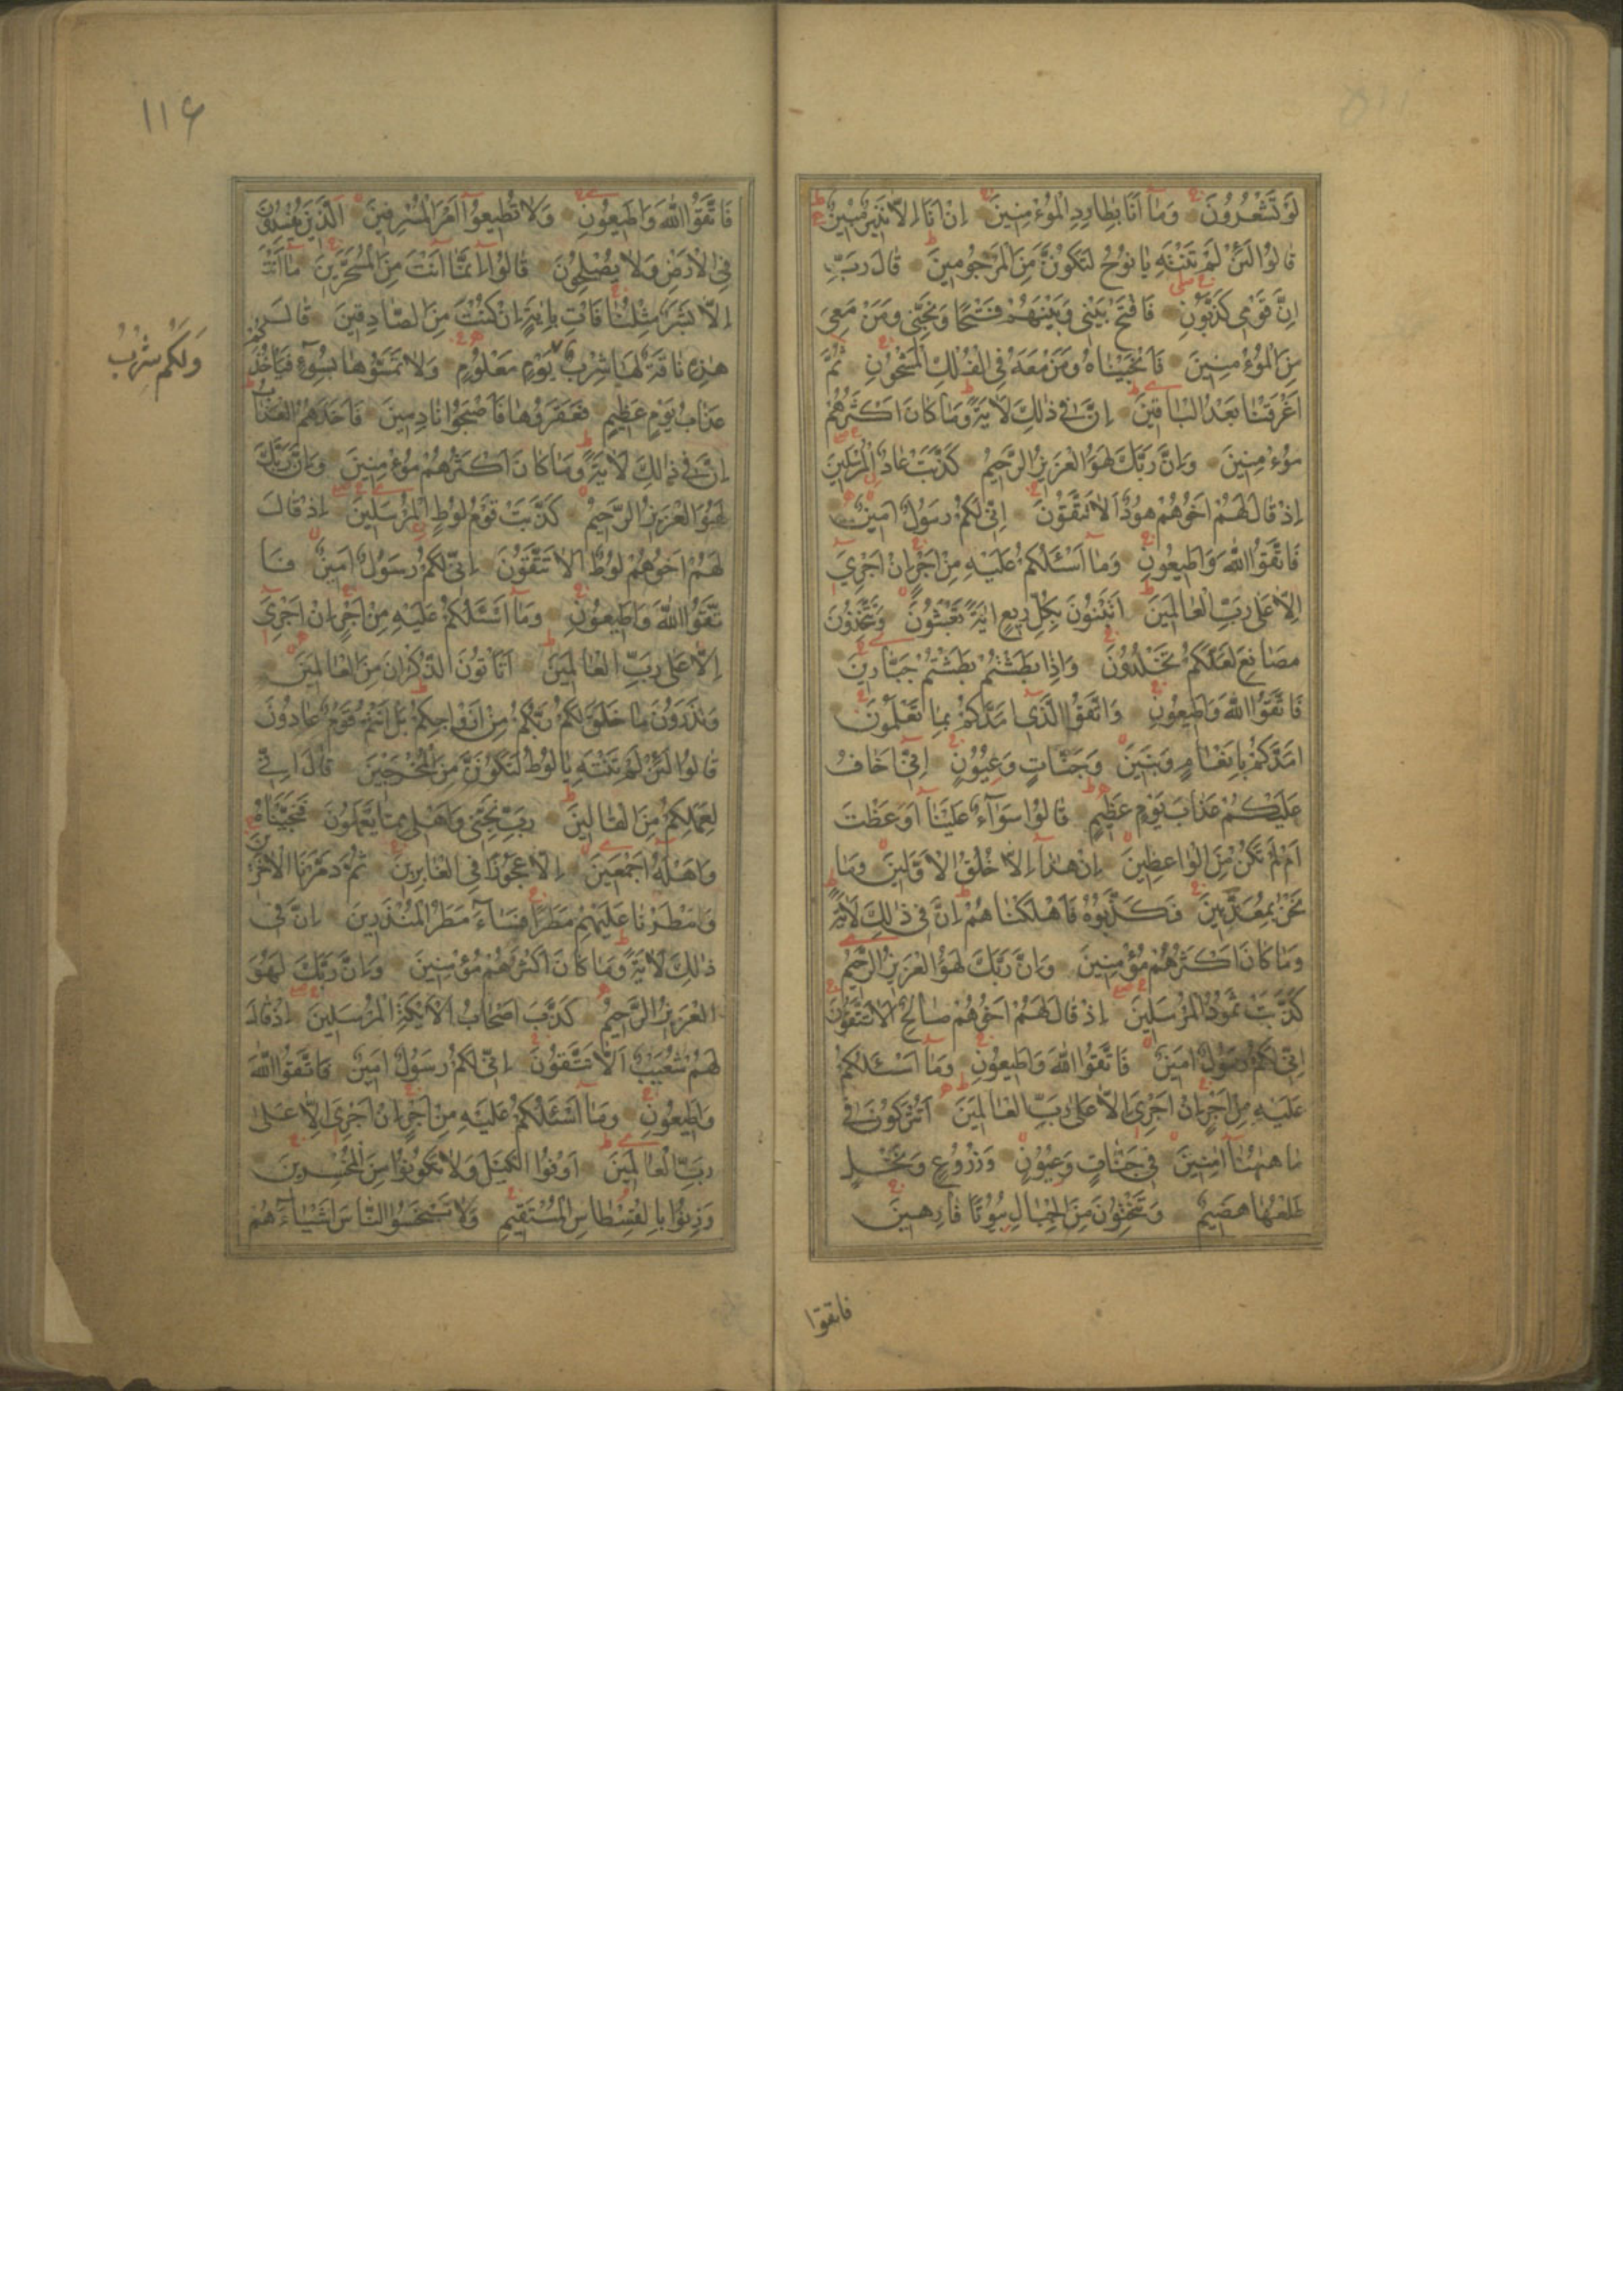 لَوْ تَشْعُرُونَ وَمَا أَنَا بِطَارِدِ الْمُؤْمِنِينَ اِنْ اَنَا اِلَّا نَذِيرٌ مُبِينٌ
قَالُوا لَئِنْ لَمْ تَنْتَهِ يَا نُوحُ لَتَكُونَنَّ مِنَ الْمَرْجُومِينَ قَالَ رَبِّ
اِنَّ قَوْمِى كَذَّبُونِ فَافْتَحْ بَيْنِى وَبَيْنَهُمْ فَتْحًا وَنَجِّنِى وَمَنْ مَعِىَ
مِنَ الْمُؤْمِنِينَ فَاَنْجَيْنَاهُ وَمَنْ مَعَهُ فِى الْفُلْكِ الْمَشْحُونِ ثُمَّ
اَغْرَقْنَا بَعْدُ الْبَاقِينَ اِنَّ فِى ذٰلِكَ لَاٰيَةً وَمَا كَانَ اَكْثَرُهُمْ
مُؤْمِنِينَ وَاِنَّ رَبَّكَ لَهُوَ الْعَزِيزُ الرَّحِيمُ كَذَّبَتْ عَادٌ الْمُرْسَلِينَ
اِذْ قَالَ لَهُمْ اَخُوهُمْ هُودٌ اَلَا تَتَّقُونَ اِنِّى لَكُمْ رَسُولٌ اَمِينٌ
فَاتَّقُوا اللّٰهَ وَاَطِيعُونِ وَمَا اَسْئَلُكُمْ عَلَيْهِ مِنْ اَجْرٍ اِنْ اَجْرِىَ
اِلَّا عَلٰى رَبِّ الْعَالَمِينَ اَتَبْنُونَ بِكُلِّ رِيعٍ اٰيَةً تَعْبَثُونَ وَتَتَّخِذُونَ
مَصَانِعَ لَعَلَّكُمْ تَخْلُدُونَ وَاِذَا بَطَشْتُمْ بَطَشْتُمْ جَبَّارِينَ
فَاتَّقُوا اللّٰهَ وَاَطِيعُونِ وَاتَّقُوا الَّذِى اَمَدَّكُمْ بِمَا تَعْلَمُونَ
اَمَدَّكُمْ بِاَنْعَامٍ وَبَنِينَ وَجَنَّاتٍ وَعُيُونٍ اِنِّى اَخَافُ
عَلَيْكُمْ عَذَابَ يَوْمٍ عَظِيمٍ قَالُوا سَوَاءٌ عَلَيْنَا اَوَعَظْتَ
اَمْ لَمْ تَكُنْ مِنَ الْوَاعِظِينَ اِنْ هٰذَا اِلَّا خُلُقُ الْاَوَّلِينَ وَمَا
نَحْنُ بِمُعَذَّبِينَ فَكَذَّبُوهُ فَاَهْلَكْنَاهُمْ اِنَّ فِى ذٰلِكَ لَاٰيَةً
وَمَا كَانَ اَكْثَرُهُمْ مُؤْمِنِينَ وَاِنَّ رَبَّكَ لَهُوَ الْعَزِيزُ الرَّحِيمُ
كَذَّبَتْ ثَمُودُ الْمُرْسَلِينَ اِذْ قَالَ لَهُمْ اَخُوهُمْ صَالِحٌ اَلَا تَتَّقُونَ
اِنِّى لَكُمْ رَسُولٌ اَمِينٌ فَاتَّقُوا اللّٰهَ وَاَطِيعُونِ وَمَا اَسْئَلُكُمْ
عَلَيْهِ مِنْ اَجْرٍ اِنْ اَجْرِىَ اِلَّا عَلٰى رَبِّ الْعَالَمِينَ اَتُتْرَكُونَ فِى
مَا هٰهُنَا اٰمِنِينَ فِى جَنَّاتٍ وَعُيُونٍ وَزُرُوعٍ وَنَخْلٍ
طَلْعُهَا هَضِيمٌ وَتَنْحِتُونَ مِنَ الْجِبَالِ بُيُوتًا فَارِهِينَ
فاتقوا
١١۶
فَاتَّقُوا اللّٰهَ وَاَطِيعُونِ وَلَا تُطِيعُوا اَمْرَ الْمُسْرِفِينَ اَلَّذِينَ يُفْسِدُونَ
فِى الْاَرْضِ وَلَا يُصْلِحُونَ قَالُوا اِنَّمَا اَنْتَ مِنَ الْمُسَحَّرِينَ مَا اَنْتَ
اِلَّا بَشَرٌ مِثْلُنَا فَاْتِ بِاٰيَةٍ اِنْ كُنْتَ مِنَ الصَّادِقِينَ قَالَ
هٰذِهِ نَاقَةٌ لَهَا شِرْبٌ يَوْمٍ مَعْلُومٍ وَلَا تَمَسُّوهَا بِسُوءٍ فَيَاْخُذَكُمْ
وَلَكُمْ شِرْبُ
عَذَابُ يَوْمٍ عَظِيمٍ فَعَقَرُوهَا فَاَصْبَحُوا نَادِمِينَ فَاَخَذَهُمُ الْعَذَابُ
اِنَّ فِى ذٰلِكَ لَاٰيَةً وَمَا كَانَ اَكْثَرُهُمْ مُؤْمِنِينَ وَاِنَّ رَبَّكَ
لَهُوَ الْعَزِيزُ الرَّحِيمُ كَذَّبَتْ قَوْمُ لُوطٍ الْمُرْسَلِينَ اِذْ قَالَ
لَهُمْ اَخُوهُمْ لُوطٌ اَلَا تَتَّقُونَ اِنِّى لَكُمْ رَسُولٌ اَمِينٌ فَا
تَّقُوا اللّٰهَ وَاَطِيعُونِ وَمَا اَسْئَلُكُمْ عَلَيْهِ مِنْ اَجْرٍ اِنْ اَجْرِىَ
اِلَّا عَلٰى رَبِّ الْعَالَمِينَ اَتَاْتُونَ الذُّكْرَانَ مِنَ الْعَالَمِينَ
وَتَذَرُونَ مَا خَلَقَ لَكُمْ رَبُّكُمْ مِنْ اَزْوَاجِكُمْ بَلْ اَنْتُمْ قَوْمٌ عَادُونَ
قَالُوا لَئِنْ لَمْ تَنْتَهِ يَا لُوطُ لَتَكُونَنَّ مِنَ الْمُخْرَجِينَ قَالَ اِنِّى
لِعَمَلِكُمْ مِنَ الْقَالِينَ رَبِّ نَجِّنِى وَاَهْلِى مِمَّا يَعْمَلُونَ فَنَجَّيْنَاهُ
وَاَهْلَهُ اَجْمَعِينَ اِلَّا عَجُوزًا فِى الْغَابِرِينَ ثُمَّ دَمَّرْنَا الْاٰخَرِينَ
وَاَمْطَرْنَا عَلَيْهِمْ مَطَرًا فَسَاءَ مَطَرُ الْمُنْذَرِينَ اِنَّ فِى
ذٰلِكَ لَاٰيَةً وَمَا كَانَ اَكْثَرُهُمْ مُؤْمِنِينَ وَاِنَّ رَبَّكَ لَهُوَ
الْعَزِيزُ الرَّحِيمُ كَذَّبَ اَصْحَابُ الْاَيْكَةِ الْمُرْسَلِينَ اِذْ قَالَ
لَهُمْ شُعَيْبٌ اَلَّا تَتَّقُونَ اِنِّى لَكُمْ رَسُولٌ اَمِينٌ فَاتَّقُوا اللّٰهَ
وَاَطِيعُونِ وَمَا اَسْئَلُكُمْ عَلَيْهِ مِنْ اَجْرٍ اِنْ اَجْرِىَ اِلَّا عَلٰى
رَبِّ الْعَالَمِينَ اَوْفُوا الْكَيْلَ وَلَا تَكُونُوا مِنَ الْمُخْسِرِينَ
وَزِنُوا بِالْقِسْطَاسِ الْمُسْتَقِيمِ وَلَا تَبْخَسُوا النَّاسَ اَشْيَاءَهُمْ